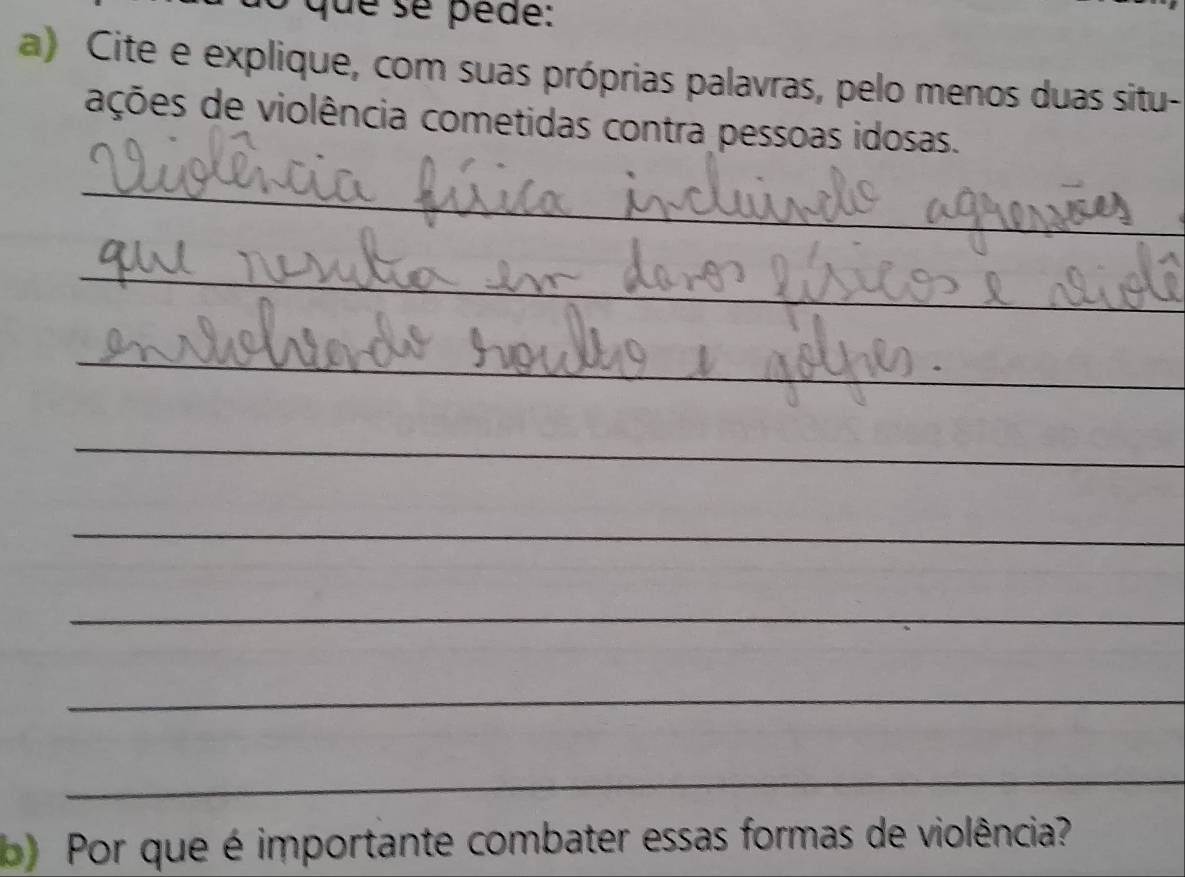 que se pede:
a) Cite e explique, com suas próprias palavras, pelo menos duas situ-
ações de violência cometidas contra pessoas idosas.
Violência física incluindo agressões
que resulta em danos físicos e violê
envolvendo roubo e golpes.
b) Por que é importante combater essas formas de violência?